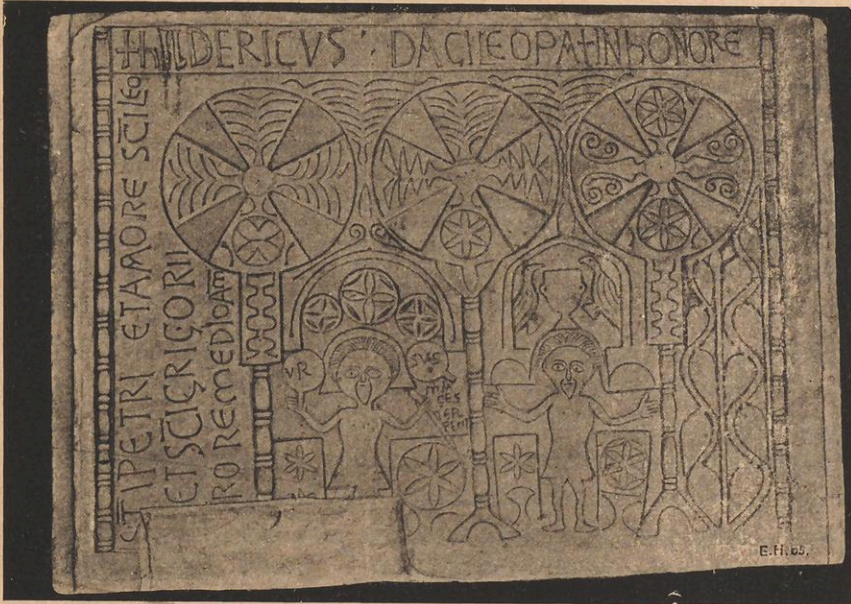 +hILDERICVS · DACILEOPA+INhONORE
SCI PETRI ETAMORE SCI LEO
ET SCI GRIGORII
RO REMEDIO AM
VR
SVS
E.H.65.